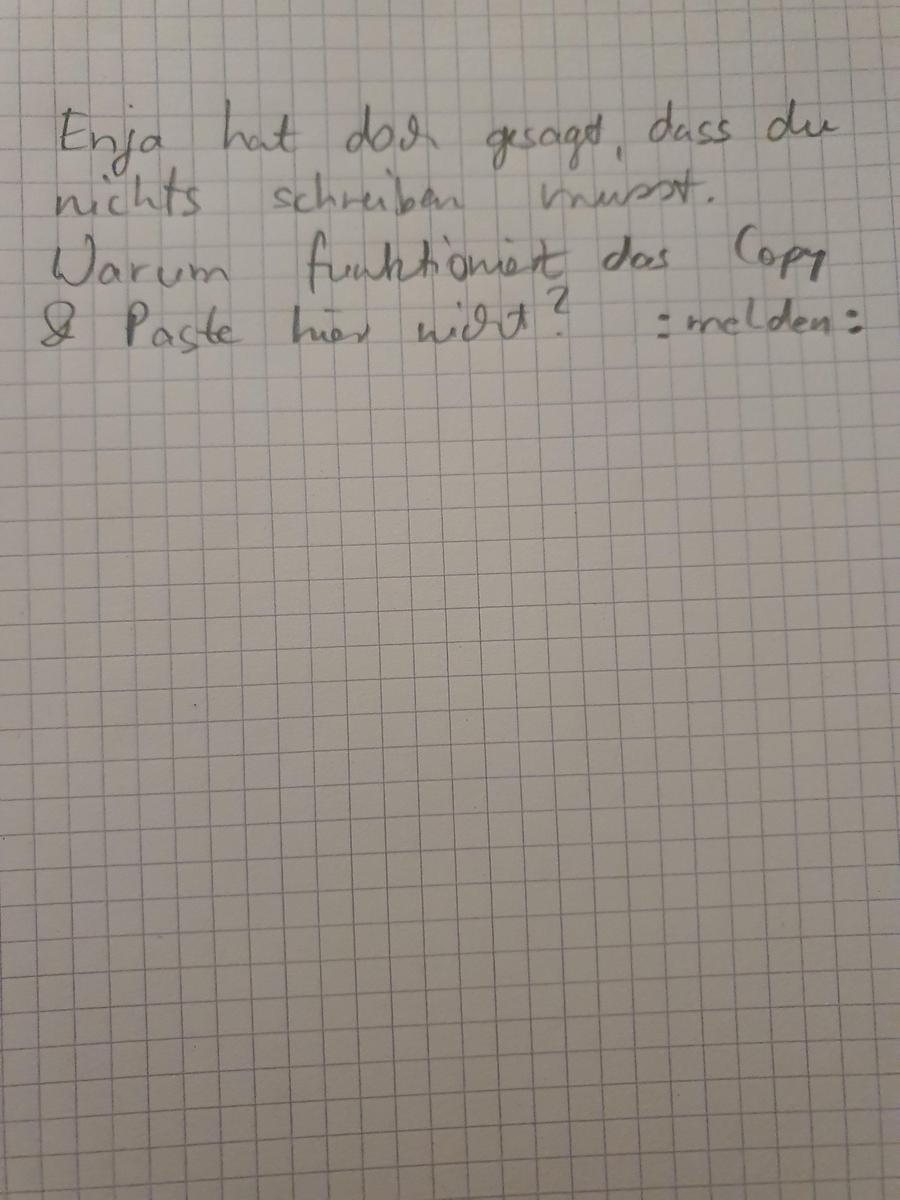 Enja hat doch gesagt, dass du
nichts schreiben musst.
Warum funktioniert das Copy
& Paste hier nicht? :melden: